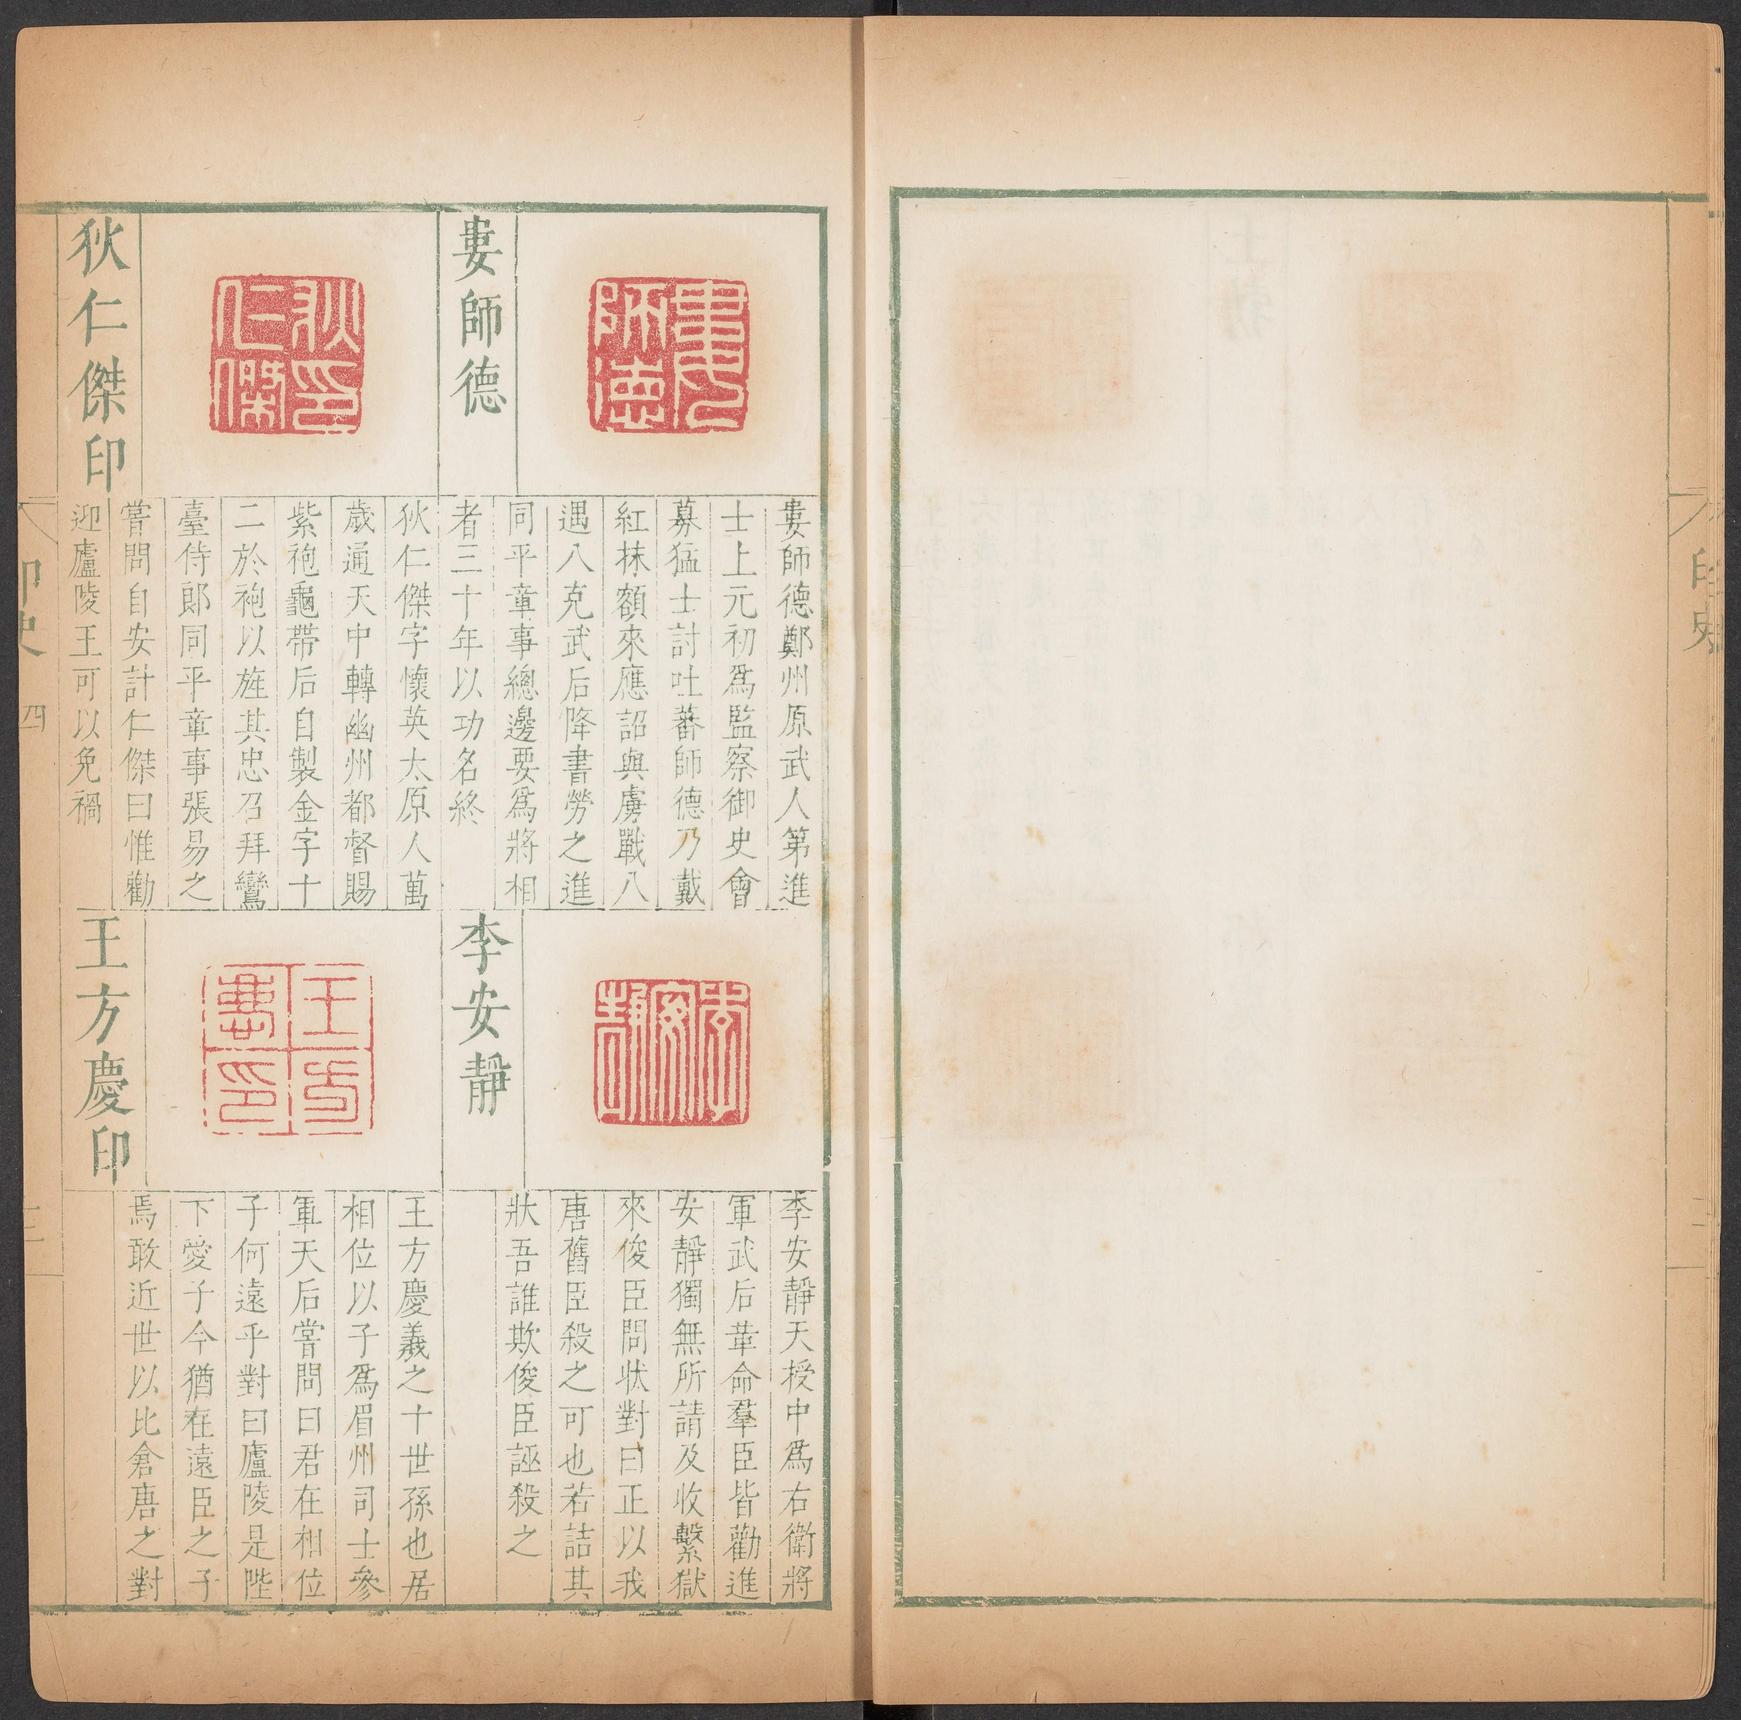 婁師德
婁師德鄭州原武人第進
士上元初爲監察御史會
募猛士討吐蕃師德乃戴
紅抹額來應詔與虜戰八
遇八克武后降書勞之進
同平章事總邊要爲將相
者三十年以功名終
狄仁傑印
狄仁傑
狄仁傑字懷英太原人萬
歲通天中轉幽州都督賜
紫袍龜帶后自製金字十
二於袍以旌其忠召拜鸞
臺侍郎同平章事張易之
嘗問自安計仁傑曰惟勸
迎廬陵王可以免禍
李安靜
李安靜天授中爲右衛將
軍武后革命羣臣皆勸進
安靜獨無所請及收繫獄
來俊臣問狀對曰正以我
唐舊臣殺之可也若詰其
狀吾誰欺俊臣誣殺之
王方慶印
王方慶義之十世孫也居
相位以子爲眉州司士參
軍天后嘗問曰君在相位
子何遠乎對曰廬陵是陛
下愛子今猶在遠臣之子
焉敢近世以比倉唐之對
印史
四
三